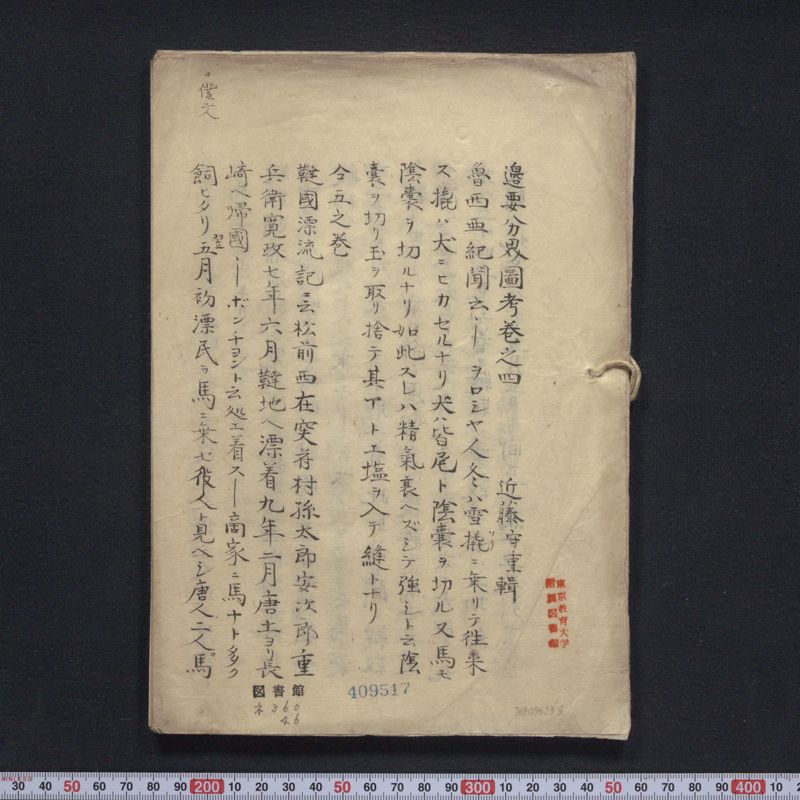 邊要分界圖考巻之四　近藤守重輯
魯西亜紀聞云ヿヲロシヤ人冬ハ雪撬ソリニ乗リテ往来
ス撬ハ犬ニヒカセルナリ犬ハ皆尾ト陰嚢ヲ切ル又馬モ
陰嚢ヲ切ルナリ如此スレハ精氣衰ヘズシテ強シト云陰
嚢ヲ切リ玉ヲ取リ捨テ其アトエ塩ヲ入テ縫トナリ
仝五之巻
韃國漂流記ニ云松前西在突苻村孫太郎安次郎重
兵衛寛政七年六月韃地ヘ漂着九年二月唐土ヨリ長
崎ヘ帰國ヿボンチヨント云処エ着スヿ商家ニ馬ナト多ク
飼ヒタリ翌五月初漂民ヲ馬ニ乗セ役人ト見ヘシ唐人二人馬
。僕文
東京教育大学
附属図書館
図書館
409517
ネ360
46